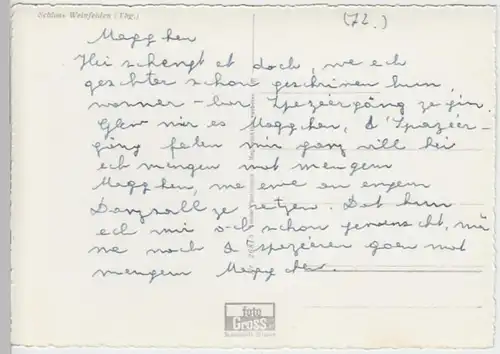 Schloss Weinfelden (Thg.)
(72.)
Maggchen
Hei schengt et doch, we ech
geschter schon geschriwen hun,
wonner-bar Spazéiergäng ze gin.
Glew mir es Maggchen, d'Spazéier-
gäng feelen mir ganz vill hei
ech mengen mat mengem
Maggchen, we ewe an engem
Danzsall ze setzen. Dat hun
ech mir och schon gewenscht, mä
na noch d spazéieren goen mat
mengem Maggchen.
foto
Gross